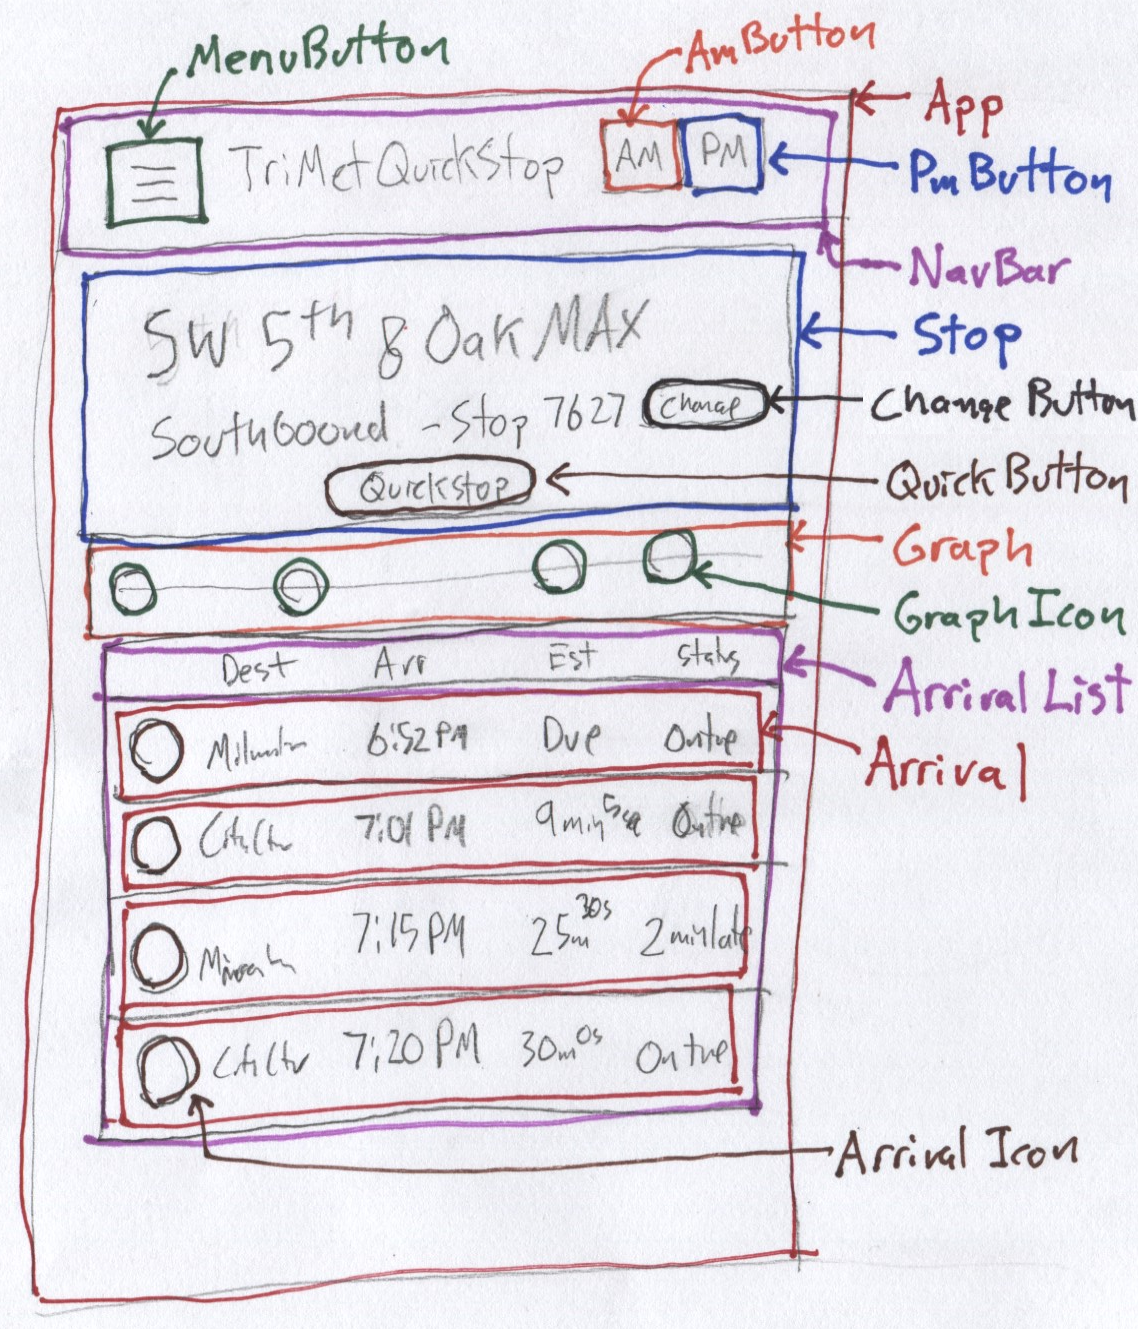 MenuButton
AmButton
App
TriMetQuickStop
AM
PM
PmButton
NavBar
SW 5th & Oak MAX
Stop
Southbound - Stop 7627
Change
Change Button
Quickstop
Quick Button
Graph
Graph Icon
Dest Arr Est Status
Arrival List
6:52 PM Due Ontime
Arrival
7:01 PM 9min 5sec Ontime
7:15 PM 25m 30s 2 min late
7:20 PM 30m 0s Ontime
Arrival Icon